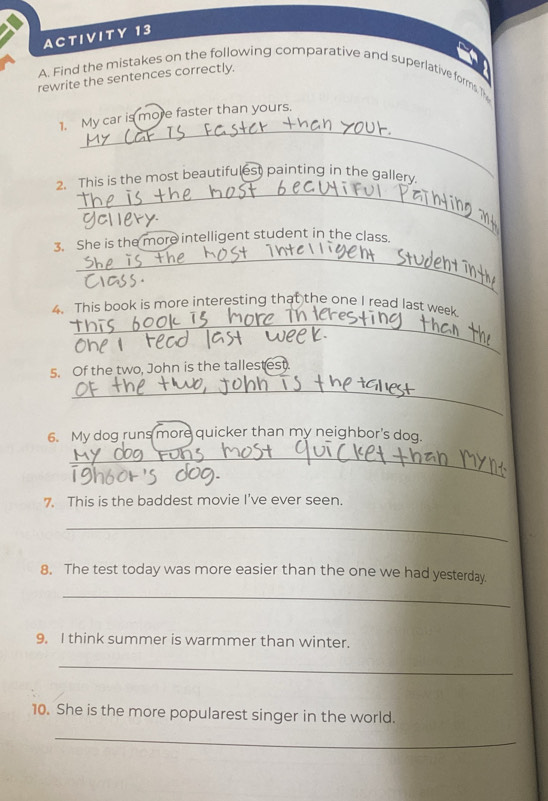 ACTIVITY 13
A. Find the mistakes on the following comparative and superlative forms. The
rewrite the sentences correctly.
1. My car is more faster than yours.
My Car Is Faster than your.
2. This is the most beautifulest painting in the gallery.
The is the most beautiful Painting in the
gallery.
3. She is the more intelligent student in the class.
She is the most intelligent student in the
class.
4. This book is more interesting that the one I read last week.
this book is more interesting than the
one I read last week.
5. Of the two, John is the tallestest.
Of the two, John is the tallest
6. My dog runs more quicker than my neighbor's dog.
My dog runs most quicker than my ne
ighbor's dog.
7. This is the baddest movie I've ever seen.
8. The test today was more easier than the one we had yesterday.
9. I think summer is warmmer than winter.
10. She is the more popularest singer in the world.